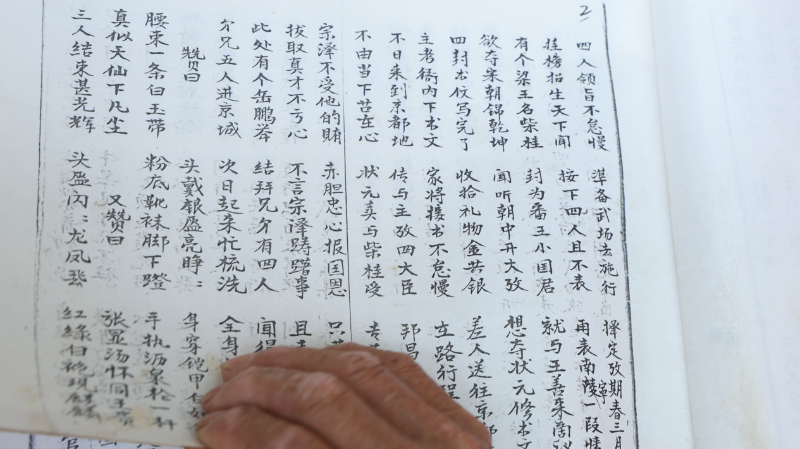 2
四人领旨不怠慢 准备武场去施行 择定攷期春三月
挂榜招生天下闻 按下四人且不表 再表南陵寧一段情
有个梁王名柴桂 封为番王小国君 就与王善来商议
欲夺宋朝锦乾坤 闻听朝中开大攷 想夺状元修书文
四封书仗写完了 收拾礼物金共银 差人送往京
主考衙内下书文 家将接书不怠慢 在路行程
不日来到京都地 传与主攷四大臣 邦昌
不由当下苦在心 状元卖与柴桂受 专
宗泽不受他的贿 赤胆忠心报国恩 只
拔取真才不亏心 不言宗泽踌躇事 且
此处有个岳鹏举 结拜兄弟有四人 闻得
弟兄五人进京城 次日起来忙梳洗 全身
赞曰 头戴银盔亮睁:: 身穿铠甲
腰束一条白玉带 粉底靴袜脚下蹬 手执沥泉枪一杆
真似天仙下凡尘 又赞曰 张显汤怀同王贵
三人结束甚光辉 头盔闪:龙凤 红绿白袍现